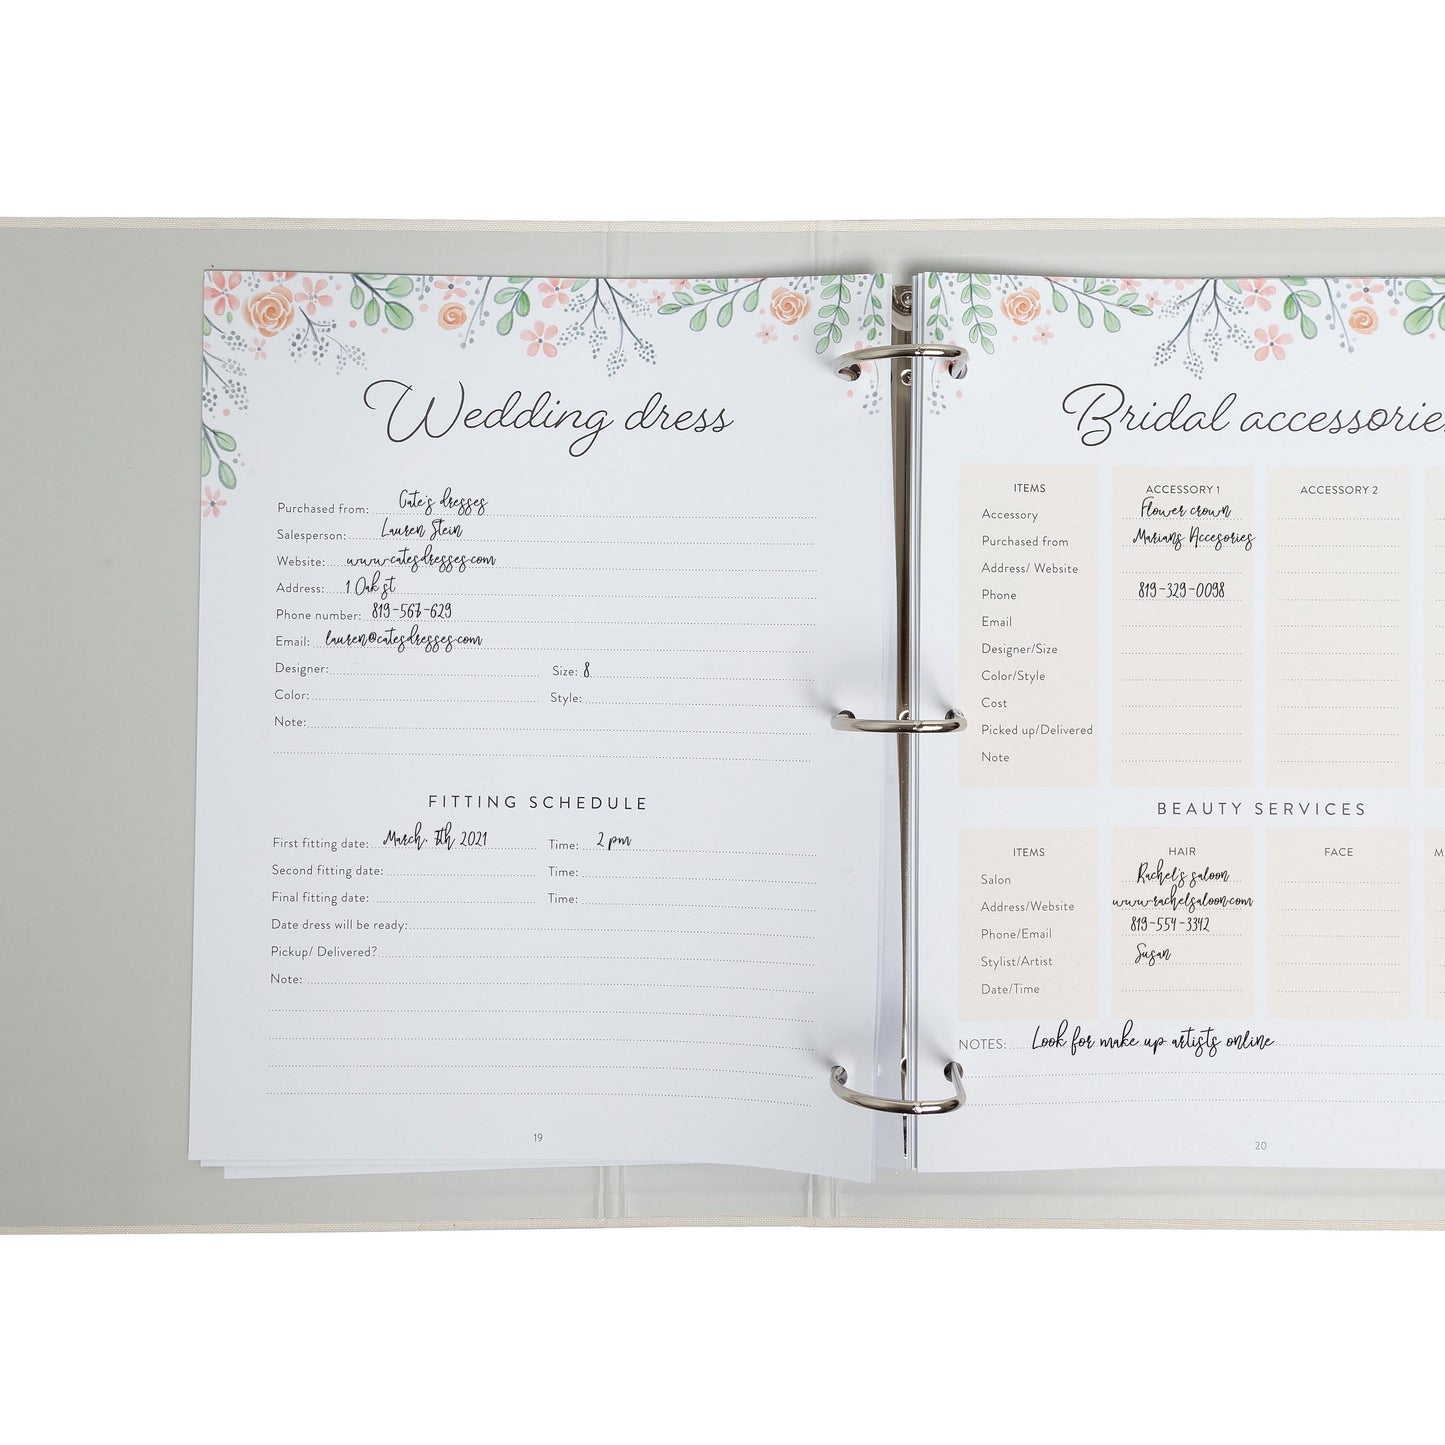 Wedding dress
Purchased from: Cate's dresses
Salesperson: Lauren Stein
Website: www.catesdresses.com
Address: 1 Oak st
Phone number: 819-567-629
Email: lauren@catesdresses.com
Designer: Size: 8
Color: Style:
Note:
FITTING SCHEDULE
First fitting date: March. 7th 2021 Time: 2 pm
Second fitting date: Time:
Final fitting date: Time:
Date dress will be ready:
Pickup/ Delivered?
Note:
19
Bridal accessorie
ITEMS ACCESSORY 1 ACCESSORY 2
Accessory Flower crown
Purchased from Marians Accesories
Address/ Website
Phone 819-329-0098
Email
Designer/Size
Color/Style
Cost
Picked up/Delivered
Note
BEAUTY SERVICES
ITEMS HAIR FACE M
Salon Rachel's saloon
Address/Website www.rachelsaloon.com
Phone/Email 819-554-3342
Stylist/Artist Susan
Date/Time
NOTES: Look for make up artists online
20